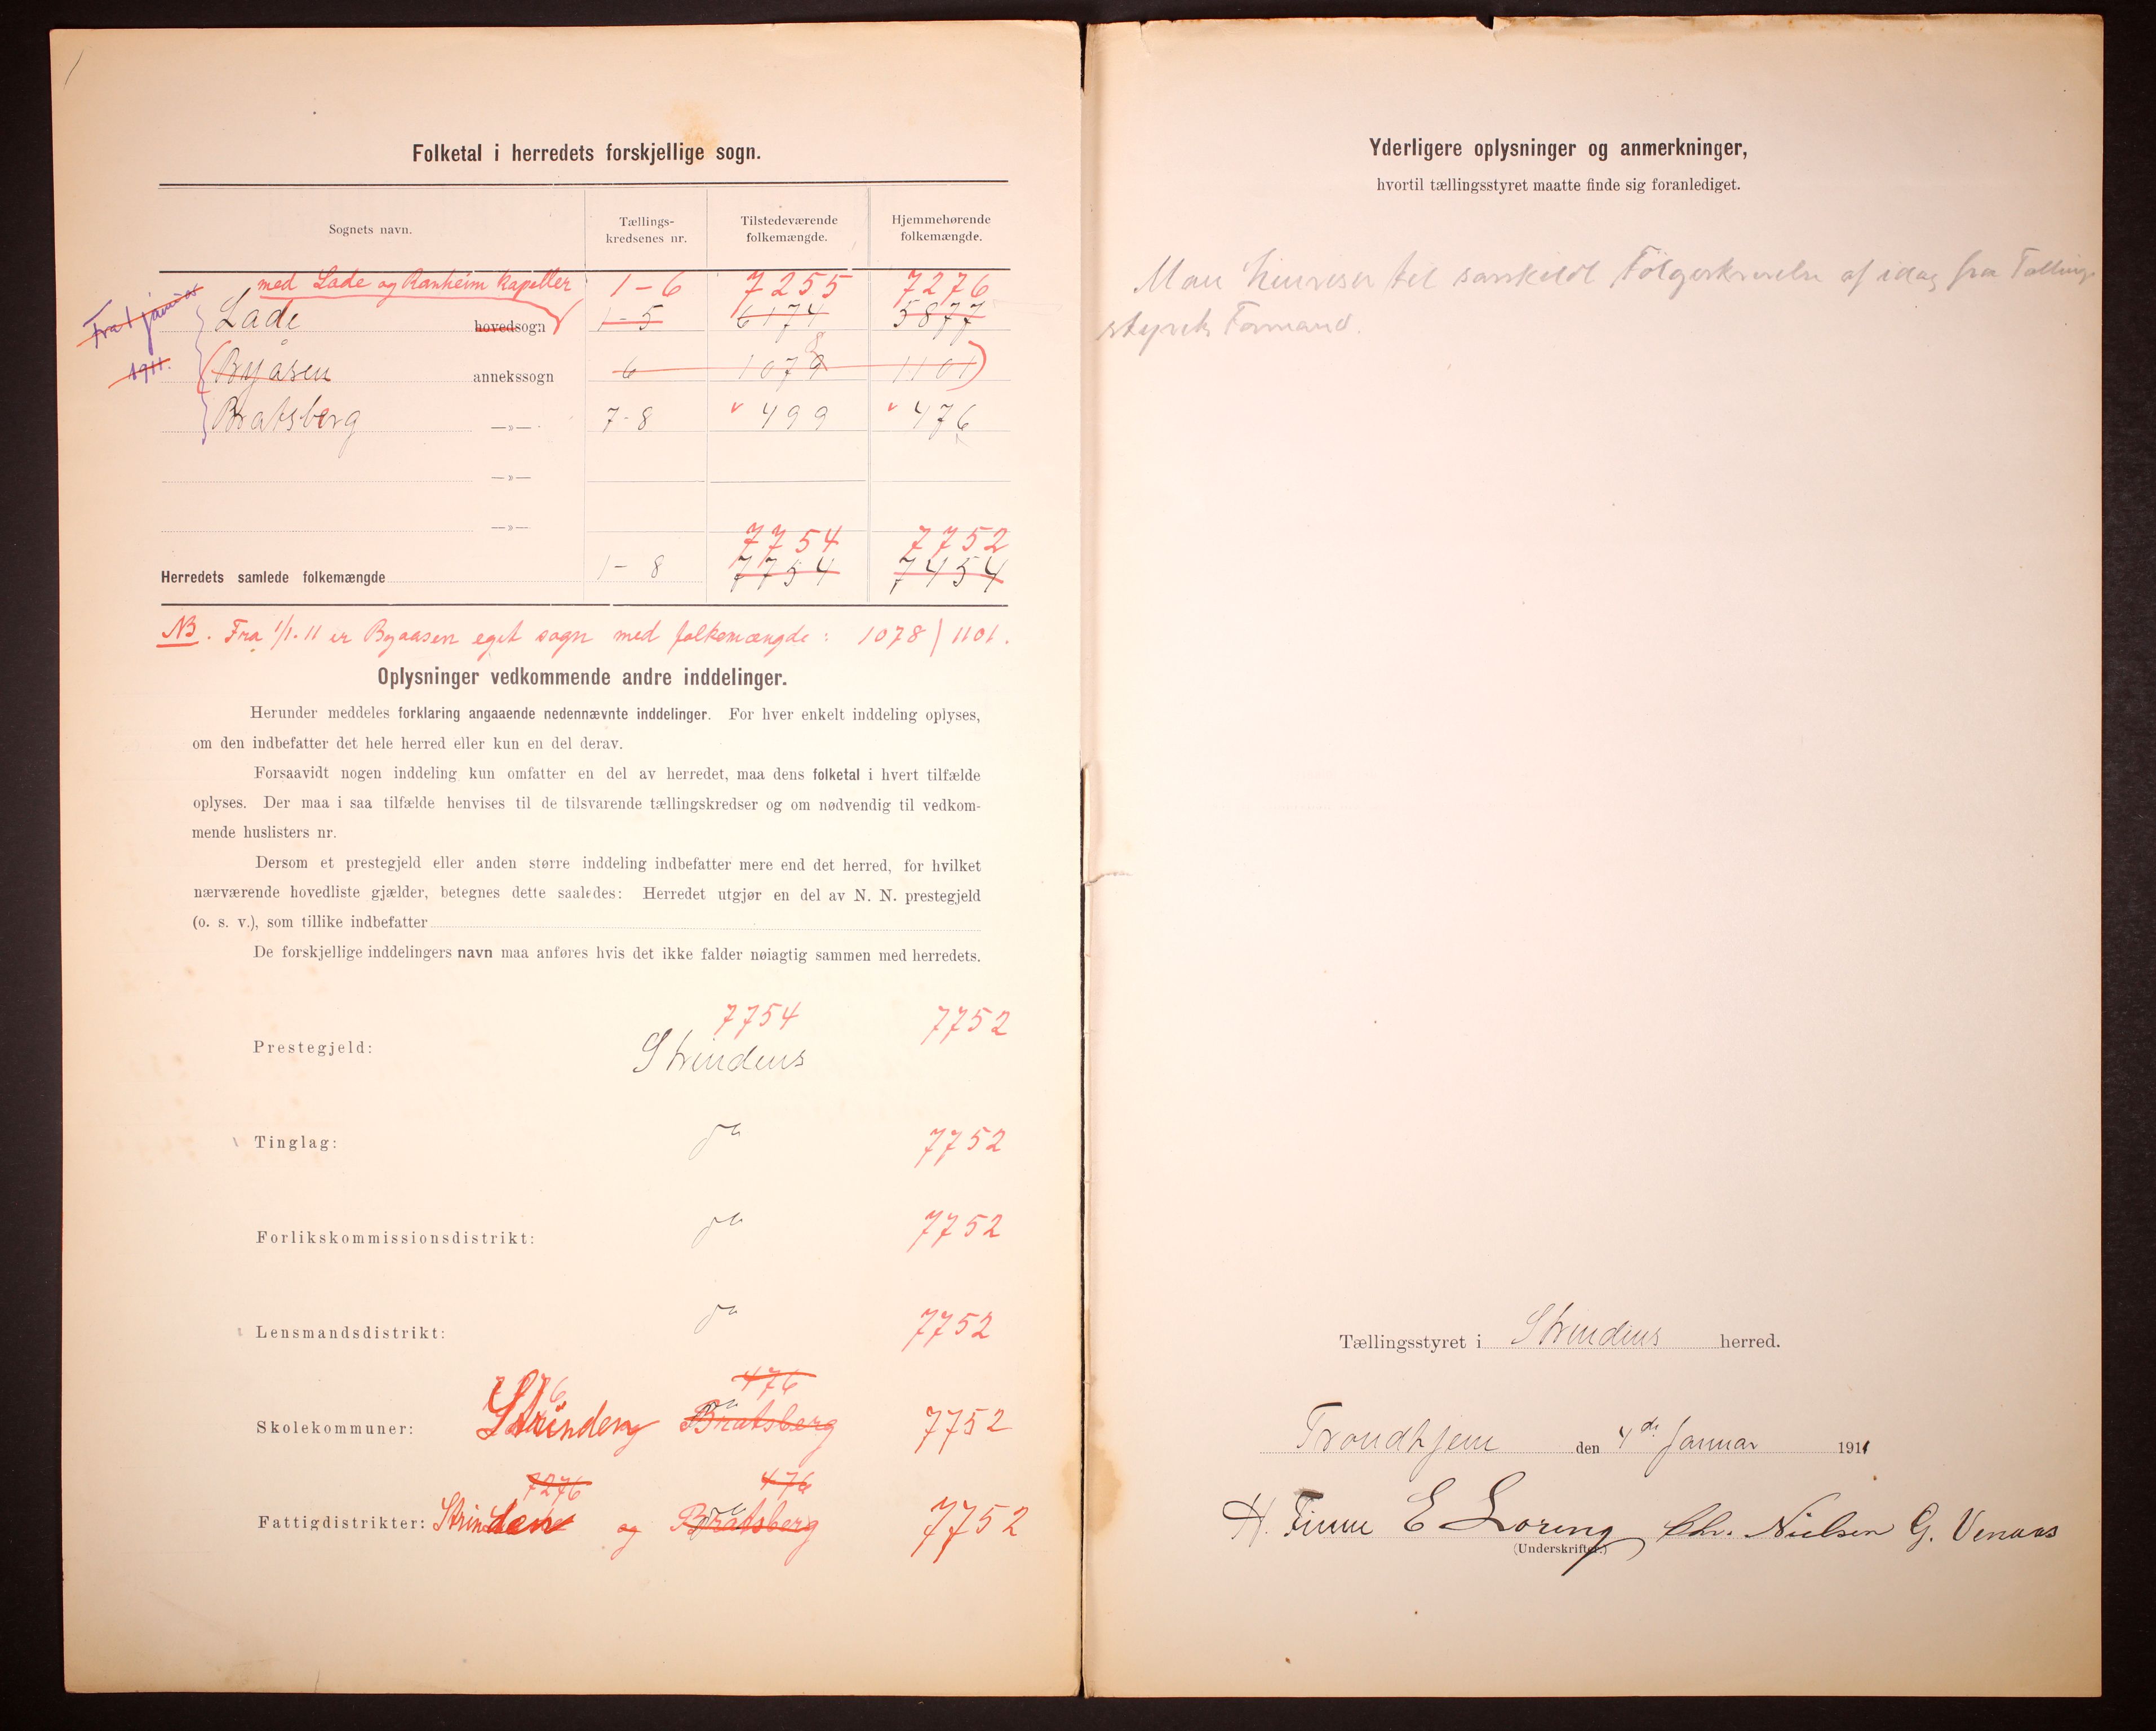 Folketal i herredets forskjellige sogn.
Sognets navn.
Tællings-
kredsenes nr.
Tilstedeværende
folkemængde.
Hjemmehørende
folkemængde.
med Lade og Ranheim kapeller 1-6 7255 7276
Fra 1 januar
1911.
Lade hovedsogn 1-5 6174 5877
Byåsen annekssogn 6 1079 1101
8
Bratsberg —»— 7-8 499 476
—»—
—»—
7754 7752
Herredets samlede folkemængde 1-8 7754 7454
NB. Fra 1/1.11 er Byaasen eget sogn med folkemængde: 1078 | 1101.
Oplysninger vedkommende andre inddelinger.
Herunder meddeles forklaring angaaende nedennævnte inddelinger. For hver enkelt inddeling oplyses,
om den indbefatter det hele herred eller kun en del derav.
Forsaavidt nogen inddeling kun omfatter en del av herredet, maa dens folketal i hvert tilfælde
oplyses. Der maa i saa tilfælde henvises til de tilsvarende tællingskredser og om nødvendig til vedkom-
mende huslisters nr.
Dersom et prestegjeld eller anden større inddeling indbefatter mere end det herred, for hvilket
nærværende hovedliste gjælder, betegnes dette saaledes: Herredet utgjør en del av N. N. prestegjeld
(o. s. v.), som tillike indbefatter
De forskjellige inddelingers navn maa anføres hvis det ikke falder nøiagtig sammen med herredets.
7754 7752
Prestegjeld: Strindens
Tinglag: do 7752
Forlikskommissionsdistrikt: do 7752
Lensmandsdistrikt: do 7752
476
Skolekommuner: Strinden Bratsberg 7752
7276 476
Fattigdistrikter: Strinden og Bratsberg 7752
Yderligere oplysninger og anmerkninger,
hvortil tællingsstyret maatte finde sig foranlediget.
Man henviser til særskildt Følgeskrivelse af idag fra Tællings
styrets Formand.
Tællingsstyret i Strindens herred.
Trondhjem den 4de Januar 1911
H. Finne E Loreng Chr. Nielsen G. Venaas
(Underskrifter.)